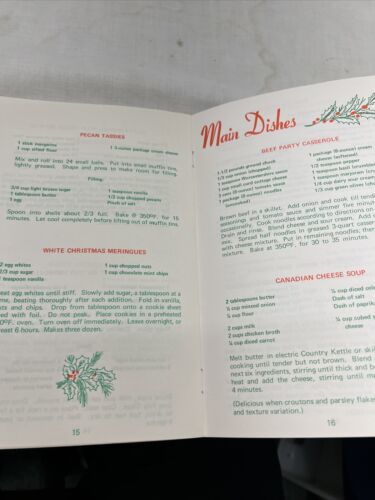 PECAN TASSIES
1 stick margarine
1 cup sifted flour
1 3-ounce package cream cheese
Mix and roll into 24 small balls. Put into small muffin tins,
lightly greased. Shape and press to make room for filling.
Filling:
3/4 cup light brown sugar
2 tablespoons butter
1 egg
1 teaspoon vanilla
1/2 cup chopped pecans
Pinch of salt
Spoon into shells about 2/3 full. Bake @ 350ºF. for 15
minutes. Let cool completely before lifting out of muffin tins.
WHITE CHRISTMAS MERINGUES
2 egg whites
2/3 cup sugar
teaspoon vanilla
1 cup chopped nuts
1 cup chocolate mint chips
eat egg whites until stiff. Slowly add sugar, a tablespoon at a
me, beating thoroughly after each addition. Fold in vanilla,
and chips. Drop from tablespoon onto a cookie sheet
with foil. Do not peak. Place cookies in a preheated
ºF. oven. Turn oven off immediately. Leave overnight, or
least 6 hours. Makes three dozen.
15
Main Dishes
BEEF PARTY CASSEROLE
1-1/2 pounds ground chuck
1/2 cup onion (chopped)
1 teaspoon Worcestershire sauce
1 cup small curd cottage cheese
2 cans (8-ounce) tomato sauce
1 package (8-ounce) noodles
1 package (8-ounce) cream
cheese (softened)
1/2 teaspoon pepper
1 teaspoon oregano
1 teaspoon marjoram
1/2 cup sour cream
1/3 cup green olives
Brown beef in a skillet. Add onion and cook till tend
seasonings and tomato sauce and simmer five minute
occasionally. Cook noodles according to directions on
Drain and rinse. Blend cheese and sour cream. Add
mix. Spread half noodles in 3-quart casserole,
with cheese mixture. Put in remaining noodles, then
mixture. Bake at 350ºF. for 30 to 35 minutes.
CANADIAN CHEESE SOUP
2 tablespoons butter
1/4 cup minced onion
1/4 cup flour
2 cups milk
2 cups chicken broth
1/4 cup diced carrot
1/4 cup diced
Dash of salt
Dash of paprika
1/2 cup cubed
cheese
Melt butter in electric Country Kettle or skil
cooking until tender but not brown. Blend
next six ingredients, stirring until thick and b
heat and add cheese, stirring until me
4 minutes.
(Delicious when croutons and parsley flakes
and texture variation.)
16